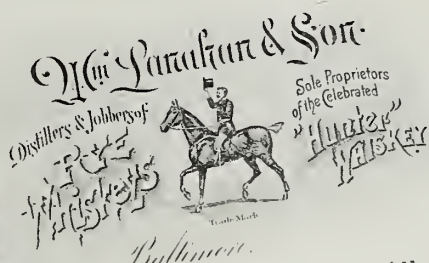 Wm Lanahan & Son.
Distillers & Jobbers of
Rye
Whiskeys
Sole Proprietors
of the Celebrated
"Hunter"
Whiskey
Trade Mark
Baltimore.